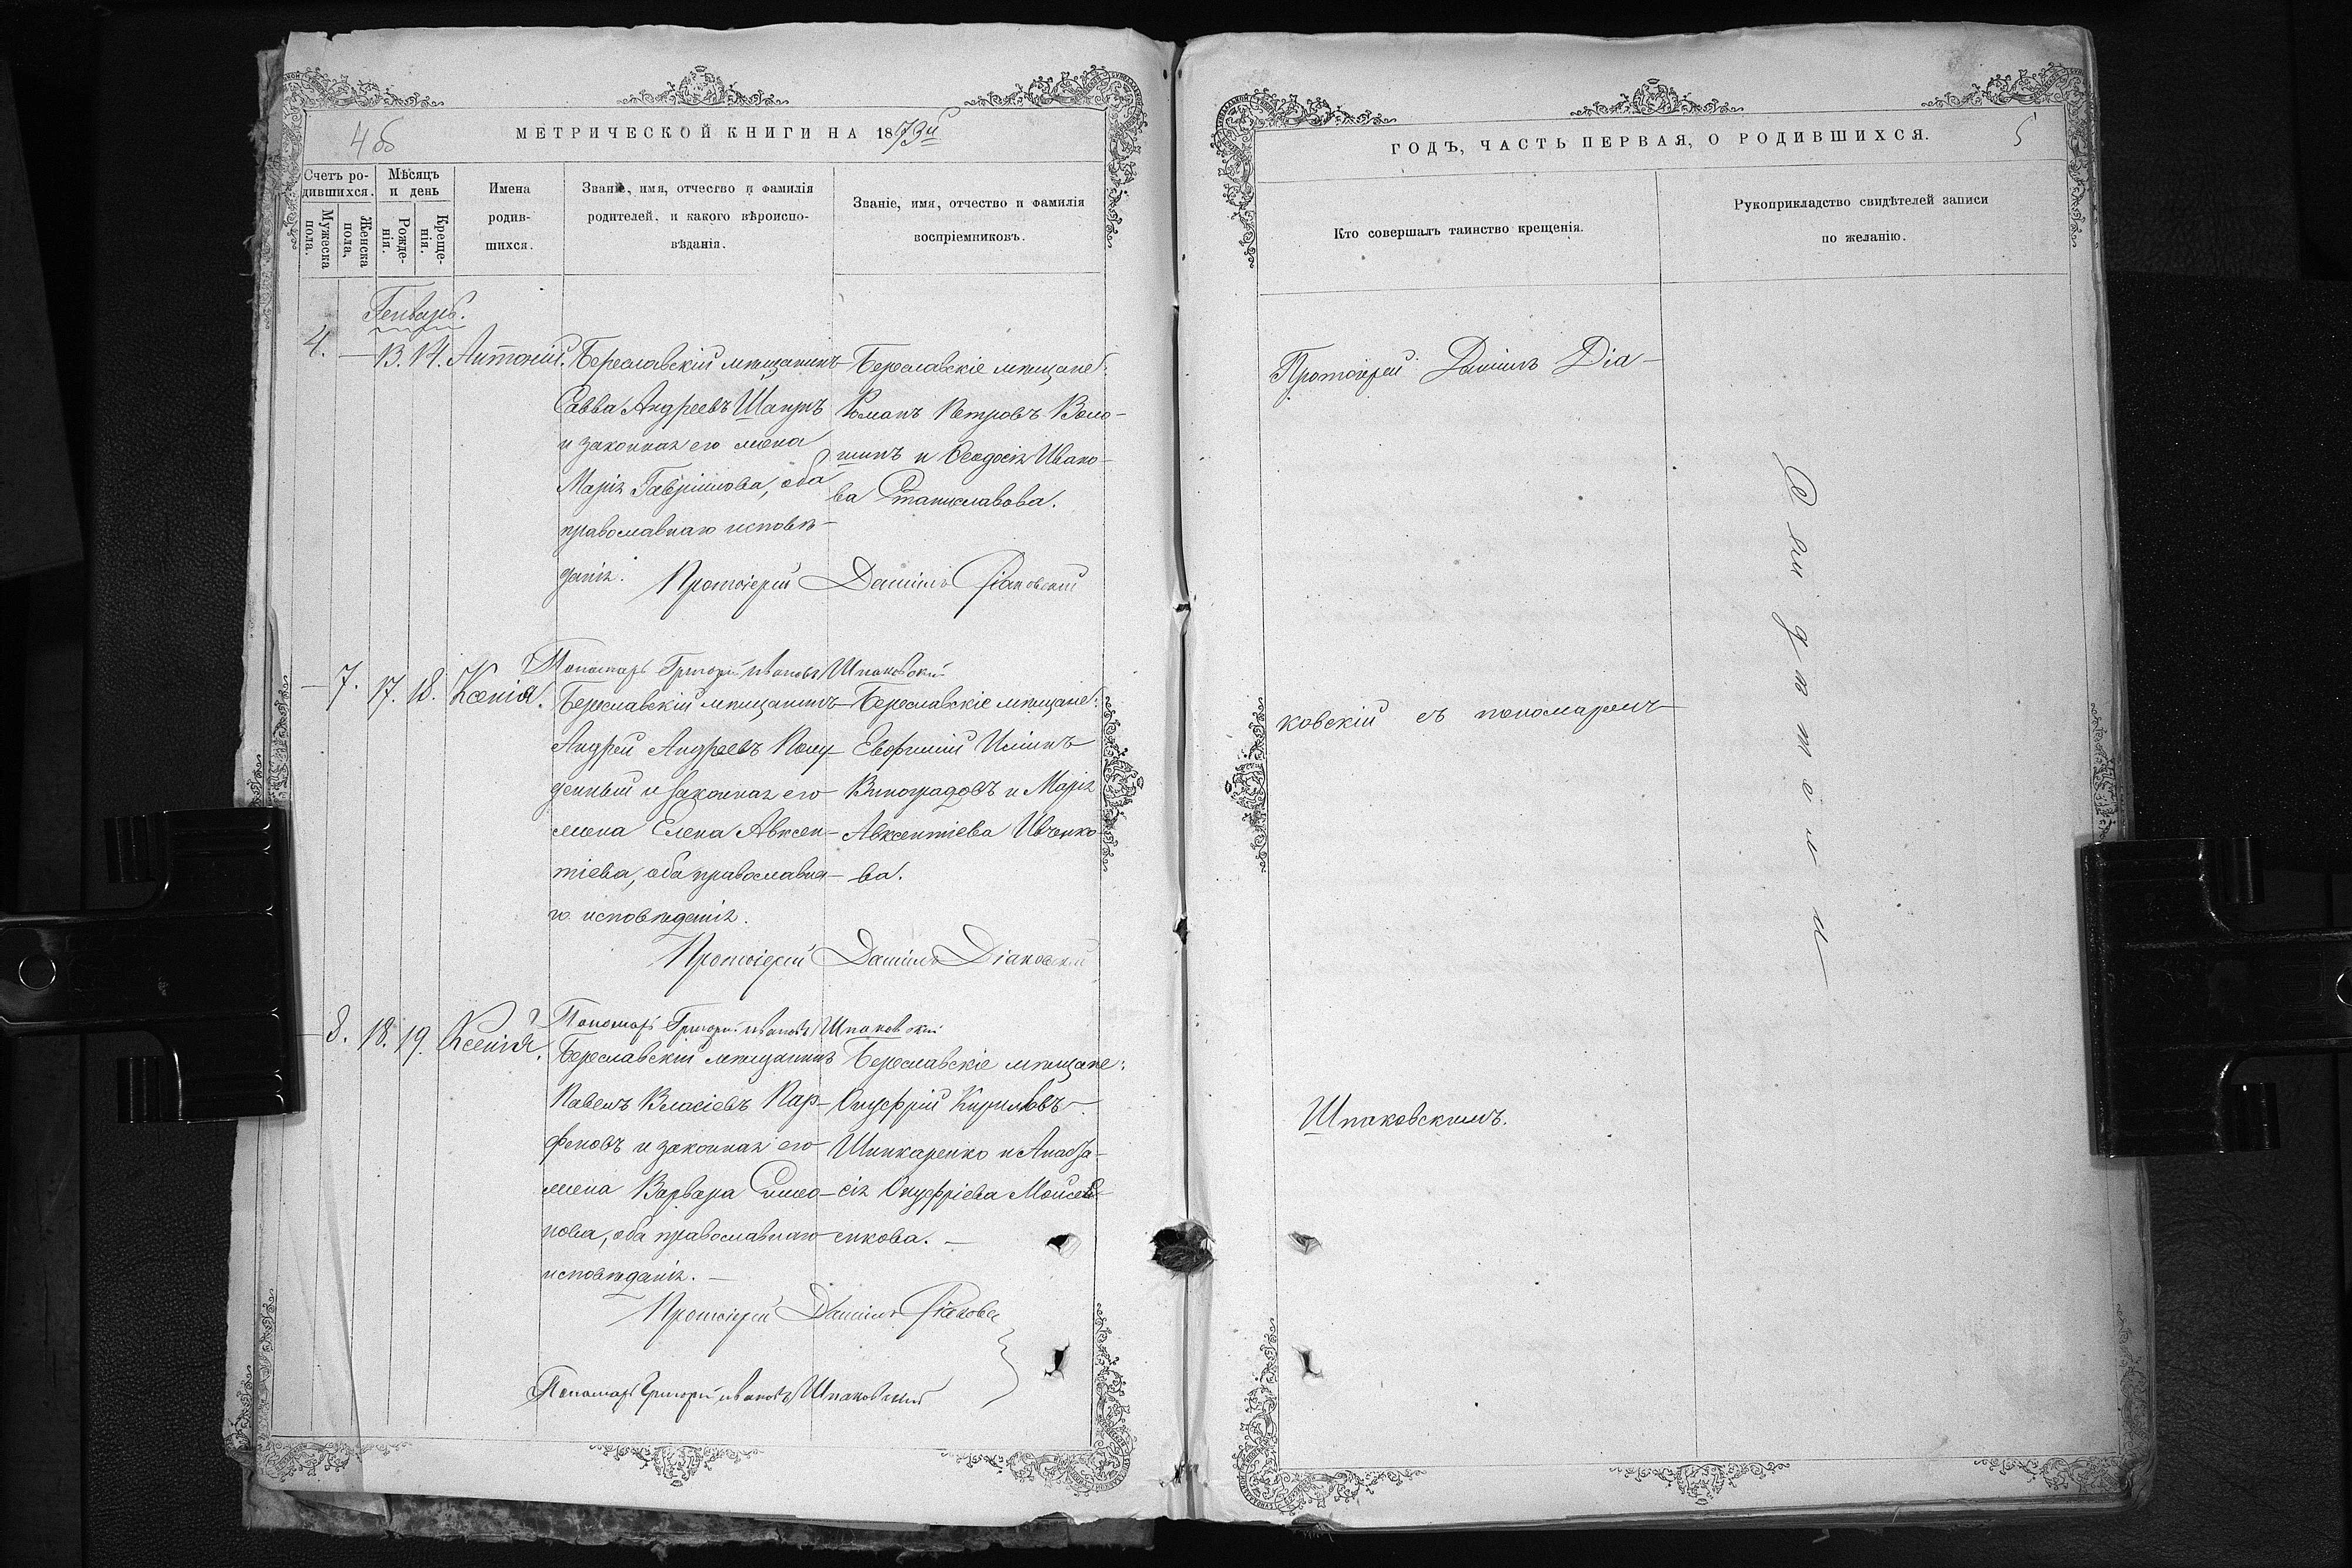 4 об
МЕТРИЧЕСКОЙ КНИГИ НА 1873й
Счетъ родившихся.
Мѣсяцъ и день
Имена родившихся.
Званіе, имя, отчество и фамилія родителей, и какого вѣроисповѣданія.
Званіе, имя, отчество и фамилія воспріемниковъ.
Мужеска пола.
Женска пола.
Рожденія.
Крещенія.
Генварь.
4. — 13. 14. Антоній.
Береславскій мѣщанинъ
Савва Андреевъ Шапръ
и законная его жена
Марія Гавріилова, оба
православнаго исповѣ-
данія.
Береславскіе мѣщане:
Романъ Петровъ Воло-
шинъ и Ѳеодосія Ивано-
ва Станиславова.
Протоіерей Даніилъ Діаковскій
Пономарь Григорій Ивановъ Шпаковскій
— 7. 17. 18. Ксенія.
Береславскій мѣщанинъ
Андрей Андреевъ Полу-
денный и законная его
жена Елена Авксен-
тіева, оба православна-
го исповѣданія.
Береславскіе мѣщане:
Евфимій Иліинъ
Виноградовъ и Марія
Авксентіева Ивченко-
ва.
Протоіерей Даніилъ Діаковскій
Пономарь Григорій Ивановъ Шпаковскій
— 8. 18. 19. Ксенія.
Береславскій мѣщанинъ
Павелъ Власіевъ Пар-
феновъ и законная его
жена Варвара Симео-
нова, оба православнаго
исповѣданія. —
Береславскіе мѣщане:
Онуфрій Кириловъ
Шинкаренко и Анаста-
сія Онуфріева Моисе-
енкова. —
Протоіерей Даніилъ Діаковск
Пономарь Григорій Ивановъ Шпаковскій
ГОДЪ, ЧАСТЬ ПЕРВАЯ, О РОДИВШИХСЯ.
5
Кто совершалъ таинство крещенія.
Рукоприкладство свидѣтелей записи по желанію.
Протоіерей Даніилъ Діа-
ковскій съ пономаремъ
Шпаковскимъ.